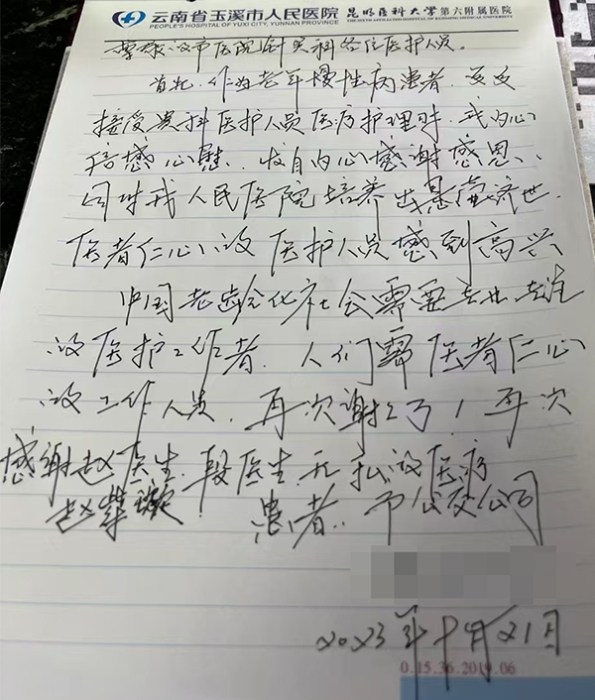 云南省玉溪市人民医院 昆明医科大学第六附属医院
PEOPLE'S HOSPITAL OF YUXI CITY, YUNNAN PROVINCE THE SIXTH AFFILIATED HOSPITAL OF KUNMING MEDICAL UNIVERSITY
市医院针灸科各位医护人员。
首先,作为老年慢性病患者,
接受贵科医护人员医疗护理时,我内心
倍感心慰、发自内心感谢感恩、
同时我人民医院培养出悬壶济世、
医者仁心的医护人员感到高兴
中国老龄化社会需要专业专注
的医护工作者,人们需医者仁心
的工作人员,再次谢谢了!再次
感谢赵医生,段医生无私的医疗
赵紫璇 患者:市公交公司
2023年十月21日
0.15.36.2019.06